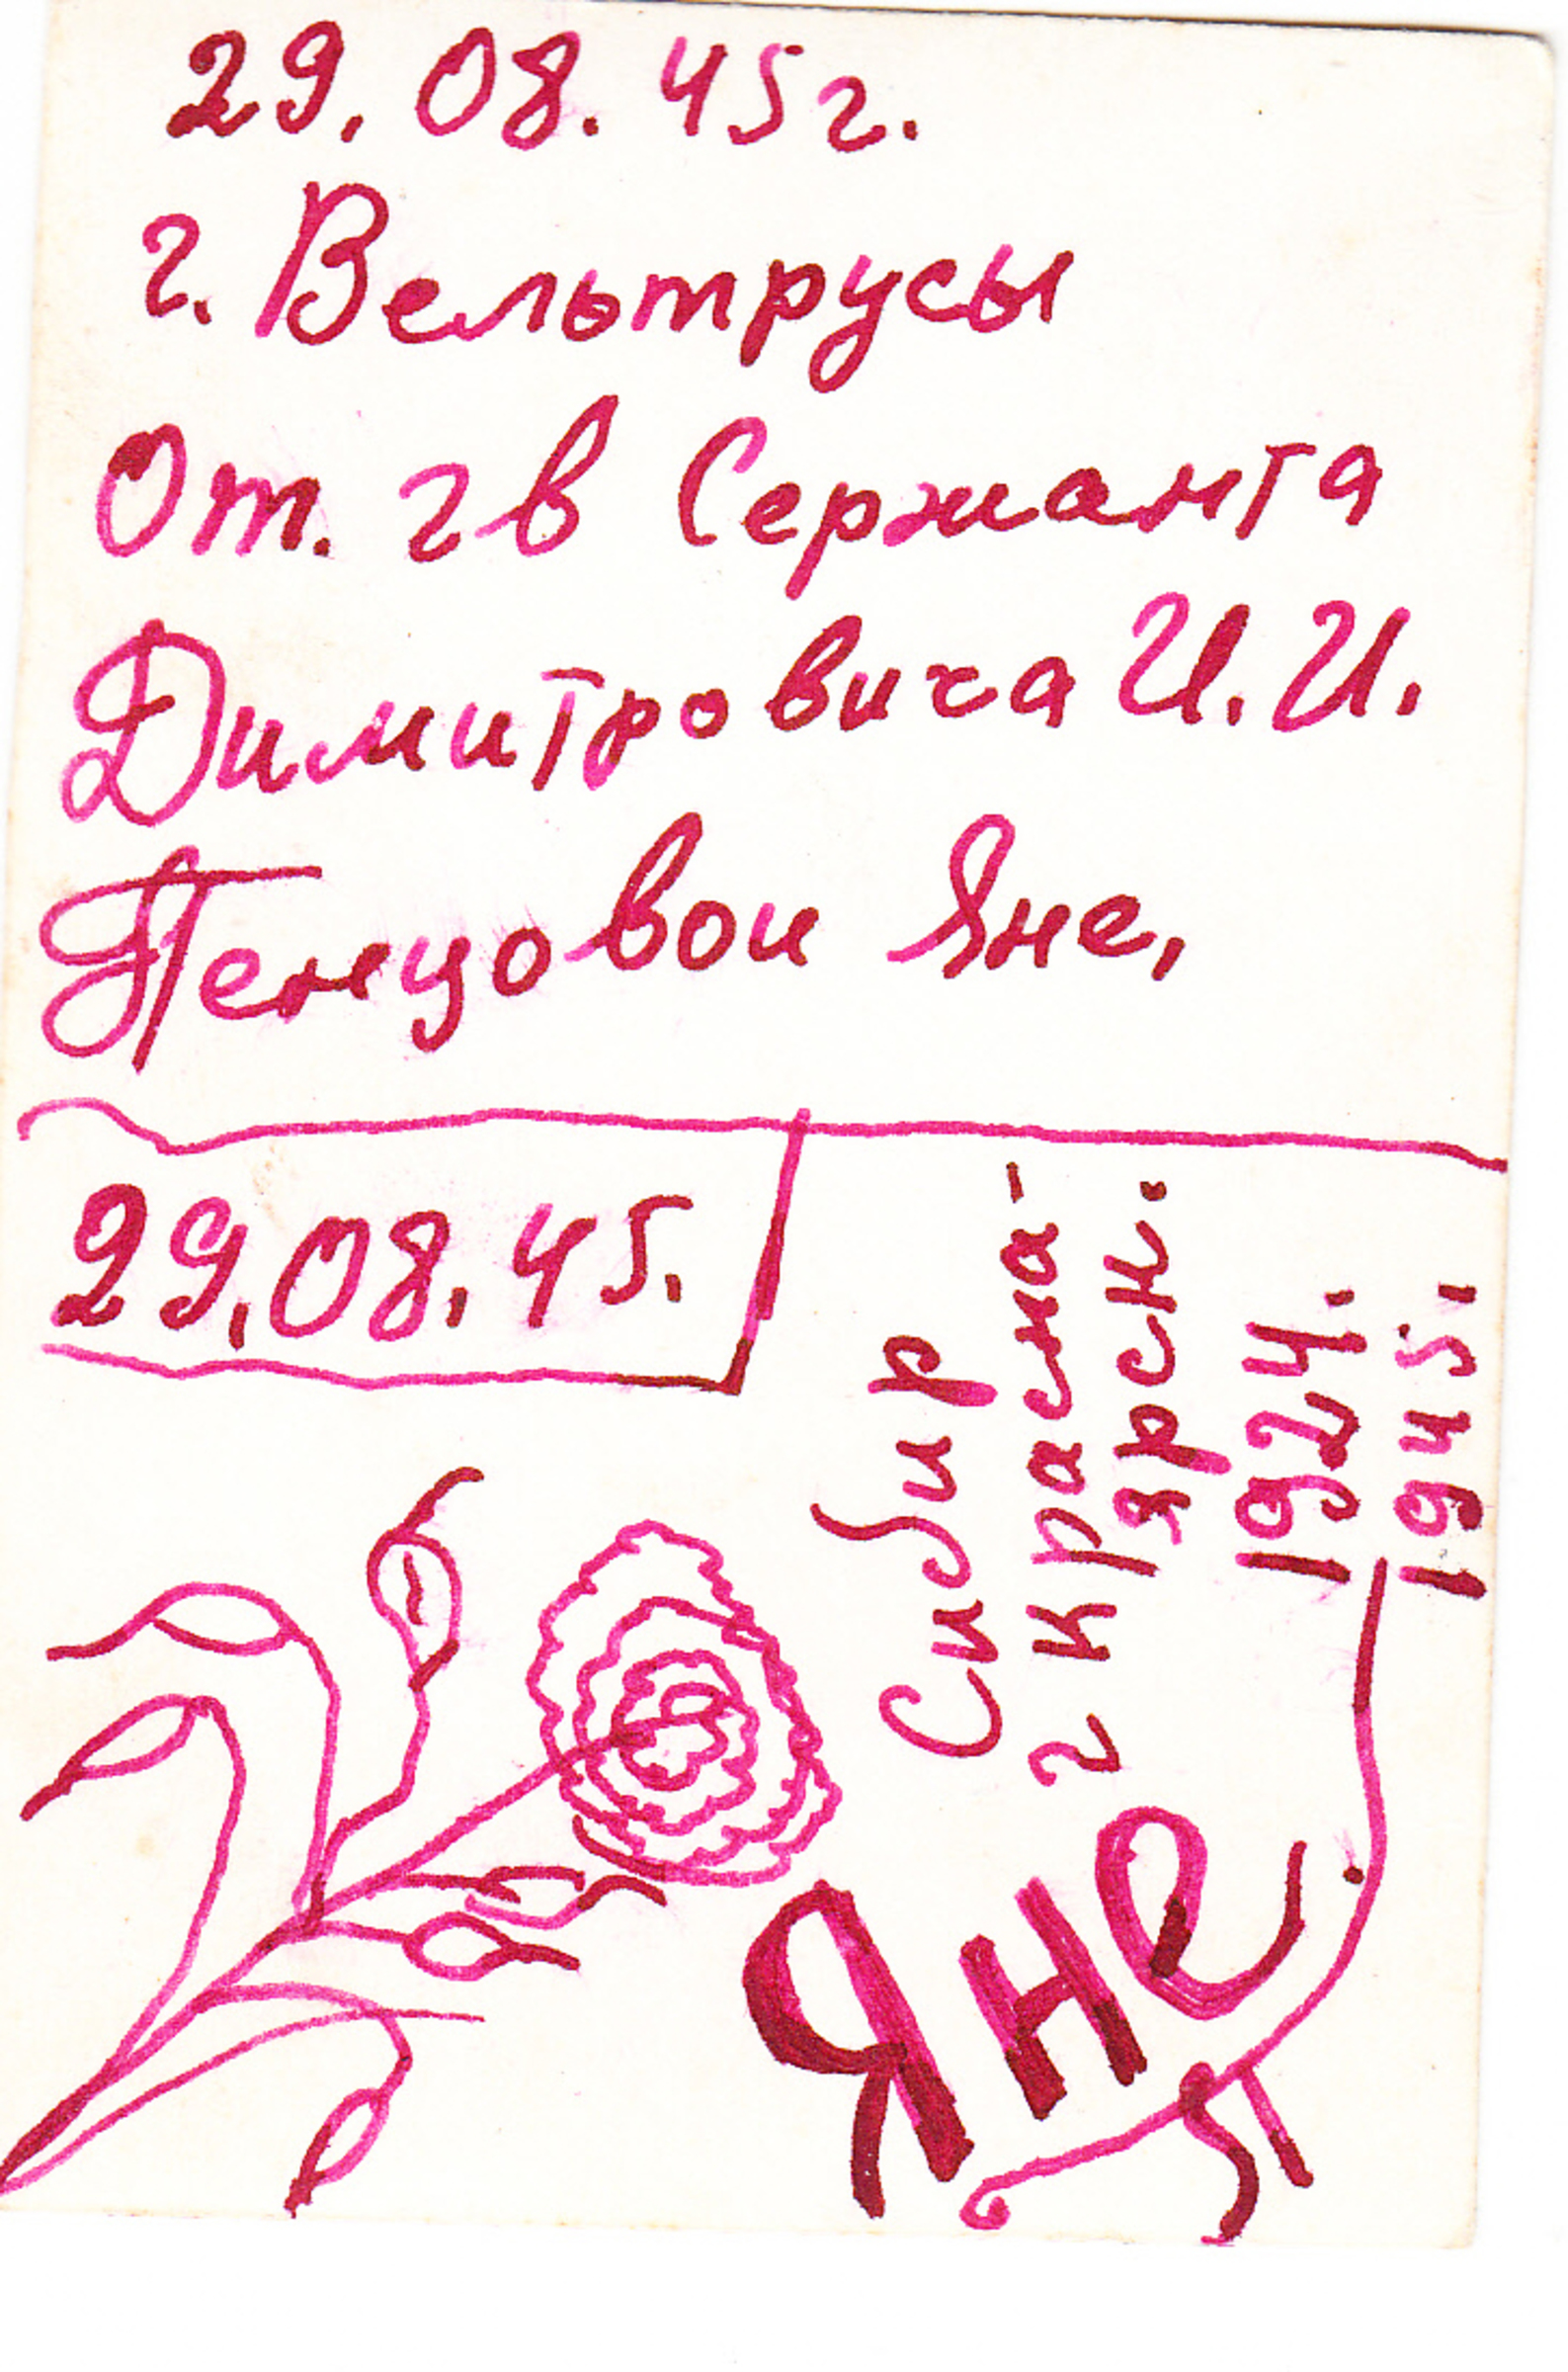 29.08.45г.
г. Вельтрусы
От. гв Сержанта
Димитровича И.И.
Пенцовои Яне,
29.08.45.
Сибир
г Красна-
ярск.
1924.
1945.
Яне